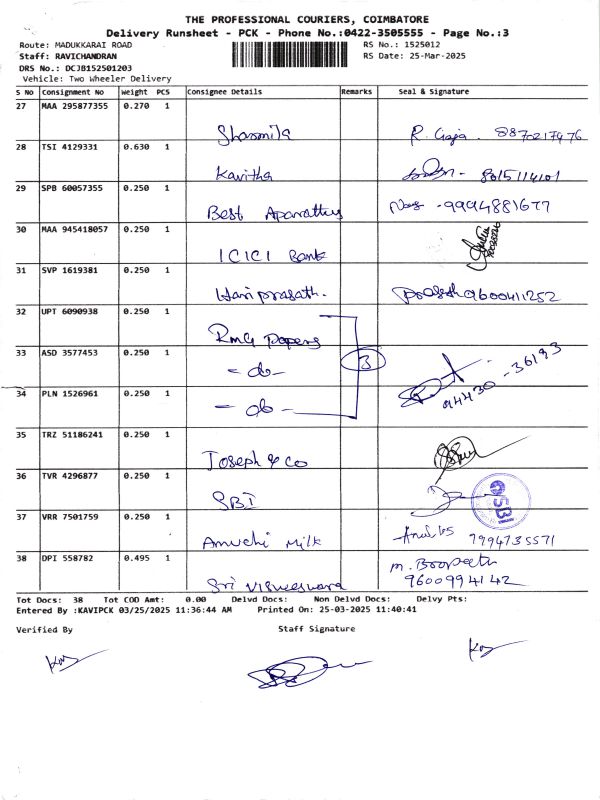 THE PROFESSIONAL COURIERS, COIMBATORE
Delivery Runsheet - PCK - Phone No.:0422-3505555 - Page No.:3
Route: MADUKKARAI ROAD RS No.: 1525012
Staff: RAVICHANDRAN RS Date: 25-Mar-2025
DRS No.: DCJB152501203
Vehicle: Two Wheeler Delivery
S No Consignment No Weight PCS Consignee Details Remarks Seal & Signature
27 MAA 295877355 0.270 1
Sharmila R. Gaja. 8870217476
28 TSI 4129331 0.630 1
Kavitha 8015114101
29 SPB 60057355 0.250 1
Best Aparattus -9994881677
30 MAA 945418057 0.250 1
ICICI Bank
31 SVP 1619381 0.250 1
Hari prasath. 9600411252
32 UPT 6090938 0.250 1
RMG Papers
33 ASD 3577453 0.250 1
- do - 3 94430-36193
34 PLN 1526961 0.250 1
- do -
35 TRZ 51186241 0.250 1
Joseph & co
36 TVR 4296877 0.250 1
SBI SBI
37 VRR 7501759 0.250 1
Amuthi Milk 7994735571
38 DPI 558782 0.495 1 m. Boopathi
Sri Visweswara 9600994142
Tot Docs: 38 Tot COD Amt: 0.00 Delvd Docs: Non Delvd Docs: Delvy Pts:
Entered By :KAVIPCK 03/25/2025 11:36:44 AM Printed On: 25-03-2025 11:40:41
Verified By Staff Signature